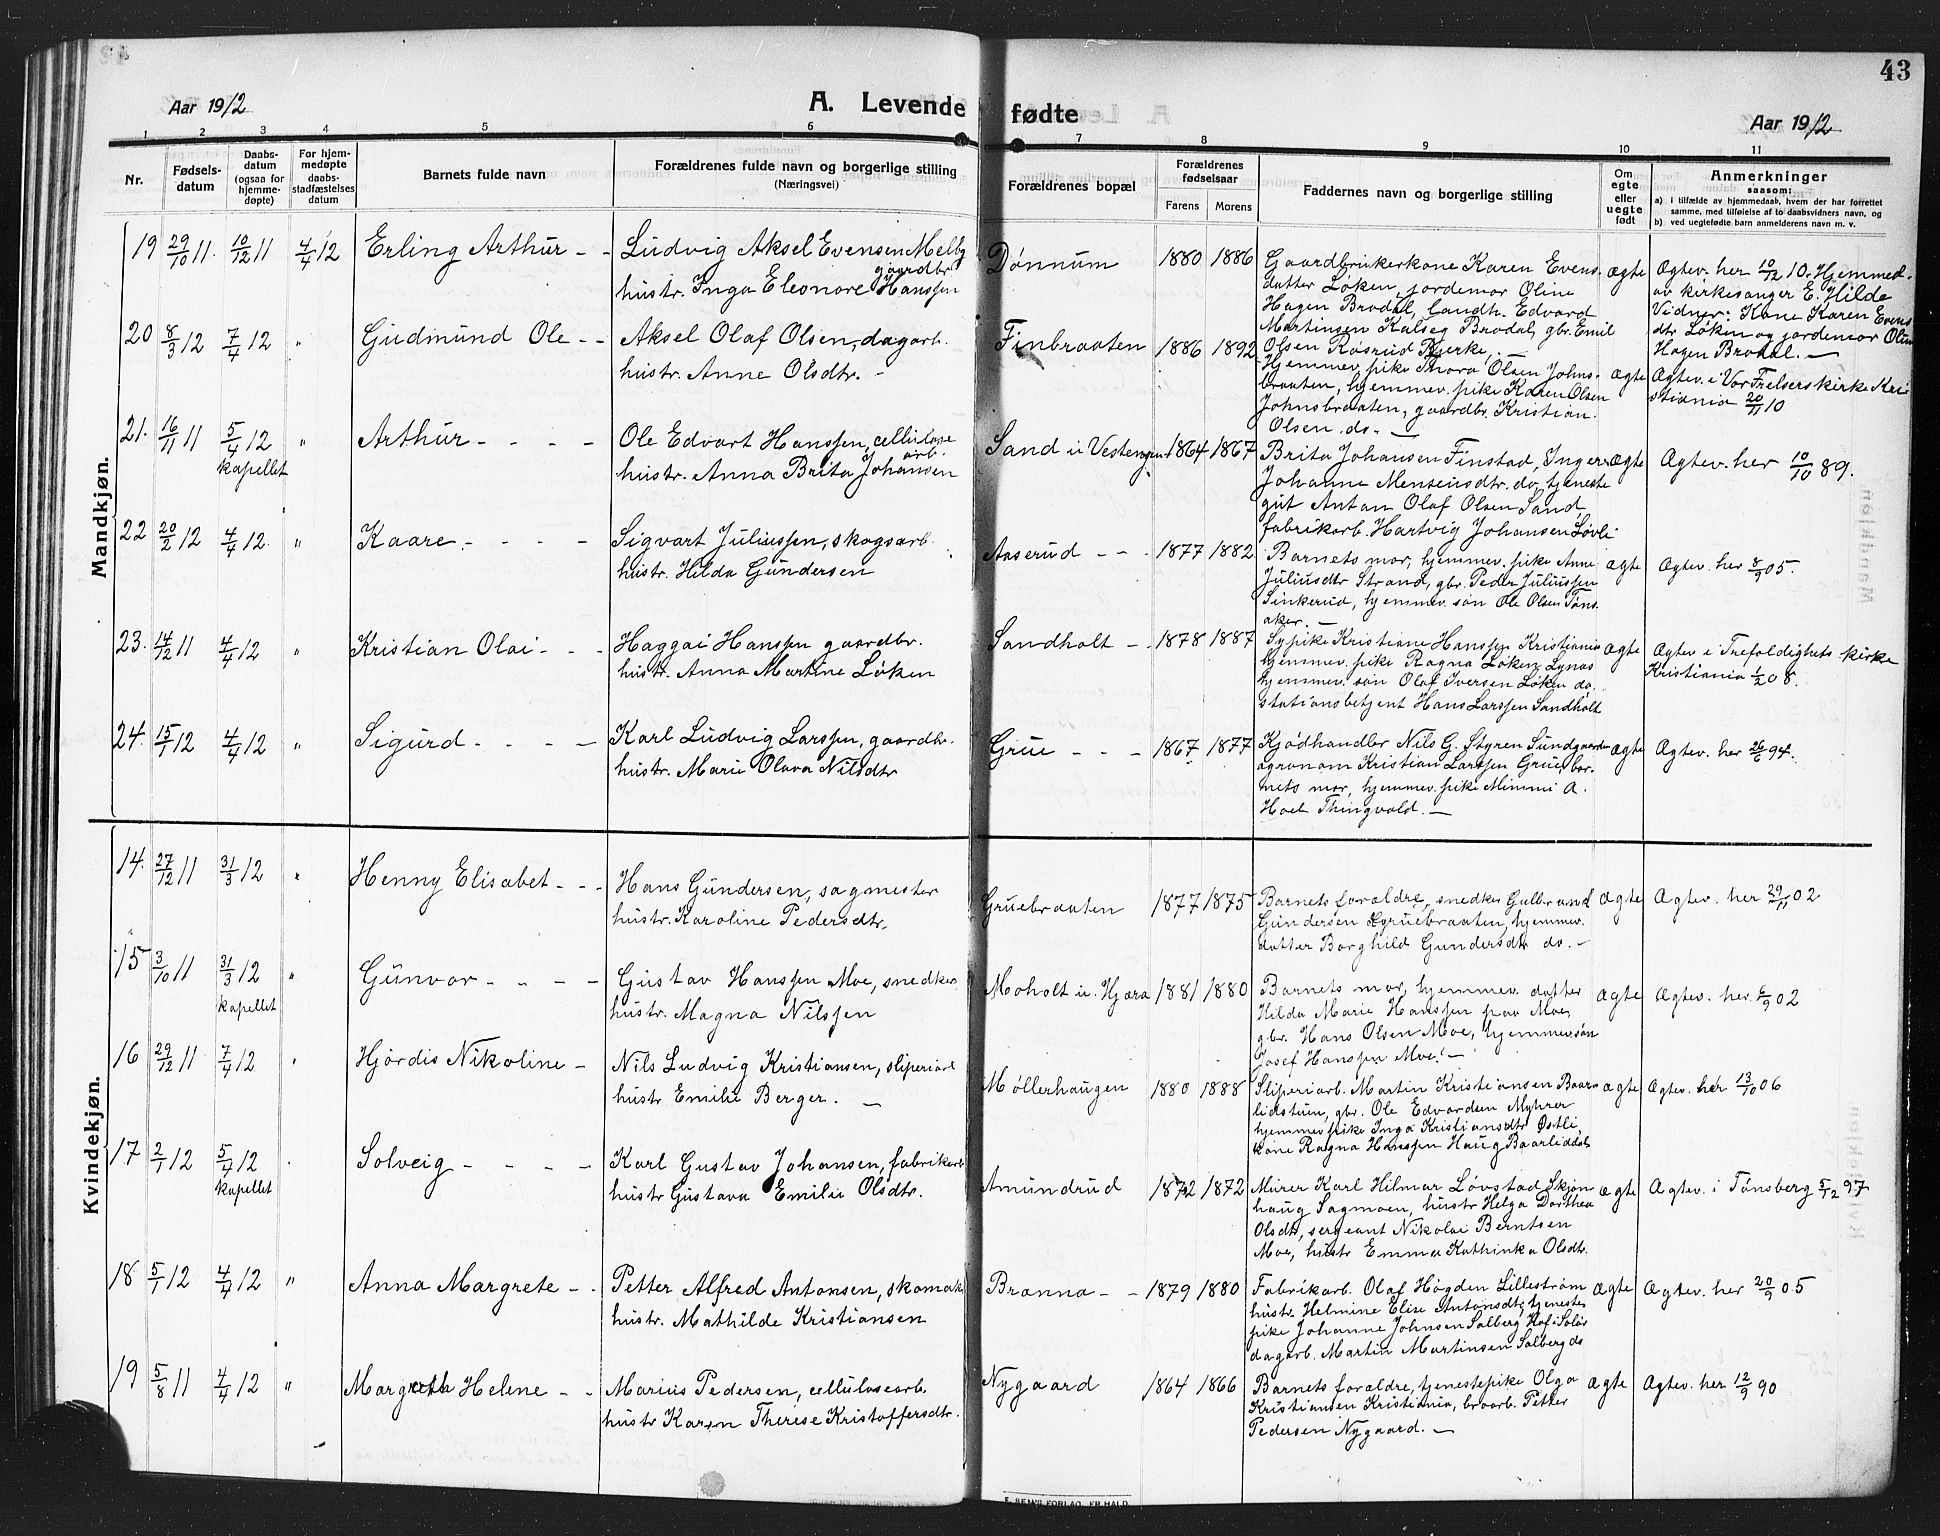 43
Aar 1912
A. Levende fødte
Aar 1912
1 2 3 4 5 6 7 8 9 10 11
Nr.
Fødsels-
datum
Daabs-
datum
(ogsaa for
hjemme-
døpte)
For hjem-
medøpte
daabs-
stadfæstelses
datum
Barnets fulde navn
Forældrenes fulde navn og borgerlige stilling
(Næringsvei)
Forældrenes bopæl
Forældrenes
fødselsaar
Farens Morens
Faddernes navn og borgerlige stilling
Om
egte
eller
uegte
født
Anmerkninger
saasom:
a) i tilfælde av hjemmedaab, hvem der har forrettet
samme, med tilføielse af to daabsvidners navn, og
b) ved uegtefødte barn anmelderens navn m. v.
Mandkjøn.
19 29/10 11. 10/12 11 4/4 12 Erling Arthur - -
Ludvig Aksel Evensen Melby
gaardbr.
hustr. Inga Eleonore Hanssen
Dønnum 1880 1886
Gaardbrukerkone Karen Evens-
datter Løken, jordemor Oline
Hagen Brodal, landh. Edvard
Martinsen Kalseg Brodal, gbr. Emil
Olsen Røsrud Bjerke,
ægte
Ægtev. her 10/12 10. Hjemmed.
av kirkesanger E. Hilde
Vidner: Kone Karen Evens
dtr Løken og jordemor Oline
Hagen Brodal. —
20 8/3 12 7/4 12 " Gudmund Ole - -
Aksel Olaf Olsen, dagarb.
hustr. Anne Olsdtr. -
Finbraaten 1886 1892
Hjemmev. pike Thora Olsen Johns-
braaten, hjemmev. pike Karen Olsen
Johnsbraaten, gaardbr. Kristian
Olsen do. —
ægte
Ægtev. i Vor Frelsers kirke Kri
stiania 20/11 10
21. 16/11 11 5/4 12 " Arthur - - - -
kapellet
Ole Edvart Hanssen, cellulose
arb.
hustr. Anna Brita Johansen
Sand u Vestengen 1864 1867
Brita Johansen Finstad, Inger
Johanne Menseusdtr. do, tjeneste
gut Anton Olaf Olsen Sand,
fabrikarb. Hartvig Johansen Løvli
ægte
Ægtev. her 10/10 89.
22 20/2 12 4/4 12. " Kaare. - - - -
Sigvart Juliussen, skogsarb.
hustr. Hilda Gundersen
Aaserud - - 1877 1882
Barnets mor, hjemmev. pike Anne
Juliusdtr Strand, gbr. Peder Juliussen
Sinkerud, hjemmev. søn Ole Olsen Tøns
aker. —
ægte
Ægtev. her 8/9 05.
23. 14/12 11 4/4 12 " Kristian Olai - - -
Haggai Hanssen gaardbr.
hustr. Anna Martine Løken
Sandholt - 1878 1887
Sypike Kristiane Hanssen Kristiania
hjemmev. pike Ragna Løken Lynas
hjemmev. søn Olaf Iversen Løken do.
stationsbetjent Hans Larssen Sandholt
ægte
Ægtev i Trefoldighets kirke
Kristiania 1/2 08.
24. 15/1 12 4/4 12 " Sigurd - - - -
Karl Ludvig Larssen, gaardbr.
hustr. Marie Olava Nilsdtr
Grue - - - 1867 1877
Kjødhandler Nils G. Styren Sundgaarden
agronom Kristian Larssen Grue, bar-
nets mor, hjemmev. pike Mimmi A.
Hoel Thingvold. —
ægte
Ægtev. her 26/6 94.
Kvindekjøn.
14. 27/12 11 31/3 12 " Henny Elisabet - - -
Hans Gundersen, sagmester
hustr. Karoline Pedersdtr.
Gruebraaten 1877 1875
Barnets forældre, snedker Gulbrand
Gundersen Gruebraaten, hjemmev.
datter Borghild Gundersdtr do. -
ægte
Ægtev. her 29/11 02
15 3/10 11 31/3 12 " Gunvor - - - -
kapellet
Gustav Hanssen Moe, snedker
hustr. Magna Nilssen
Moholt u. Hjæra 1881 1880
Barnets mor, hjemmev. datter
Hilda Marie Hanssen paa Moe,
gbr. Hans Olsen Moe, hjemmev. søn
Josef Hanssen Moe. —
ægte
Ægtev. her. 6/9 02
16 29/12 11 7/4 12 " Hjördis Nikoline -
Nils Ludvig Kristiansen, sliperiarb
hustr Emilie Berger. —
Møllerhaugen 1880 1888
Sliperiarb. Martin Kristiansen Baar
lidstuen, gbr. Ole Edvardsen Myhrer
hjemmev pike Inga Kristiansdtr Østli,
kone Ragna Hanssen Haug Baarliddal
ægte
Ægtev. her 13/10 06
17 2/1 12 5/4 12 Solveig - - - -
kapellet
Karl Gustav Johansen, fabrikarb
hustr Gustava Emilie Olsdtr.
Amundrud 1872 1872
Murer Karl Hilmar Løvstad Skjøn
haug Sagmoen, hustr Helga Dorthea
Olsdtr, sergeant Nikolai Berntsen
Moe, hustr Emma Kathinka Olsdtr.
ægte
Ægtev. i Tønsberg 5/12 97
18 5/1 12 4/4 12 " Anna Margrete - -
Petter Alfred Antonsen, skomak
hustr. Mathilde Kristiansen
Branna - - 1879 1880
Fabrikarb. Olaf Høgden Lillestrøm
hustr. Helmine Elise Antonsdtr, tjeneste
pike Johanne Johnsen Solberg Hof i Solør
dagarb. Martin Martinsen Solberg do
ægte
Ægtev. her 20/9 05
19 5/8 11 4/4 12 " Margreth Helene - -
Marius Pedersen, cellulosearb.
hustr Karen Therese Kristoffersdtr.
Nygaard 1864 1866
Barnets forældre, tjenestepike Olga
Kristiansen Kristiania, broarb. Petter
Pedersen Nygaard. —
ægte
Ægtev. her 12/9 90